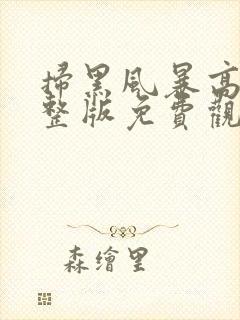 掃黑風暴高
整版免費觀
森繪里